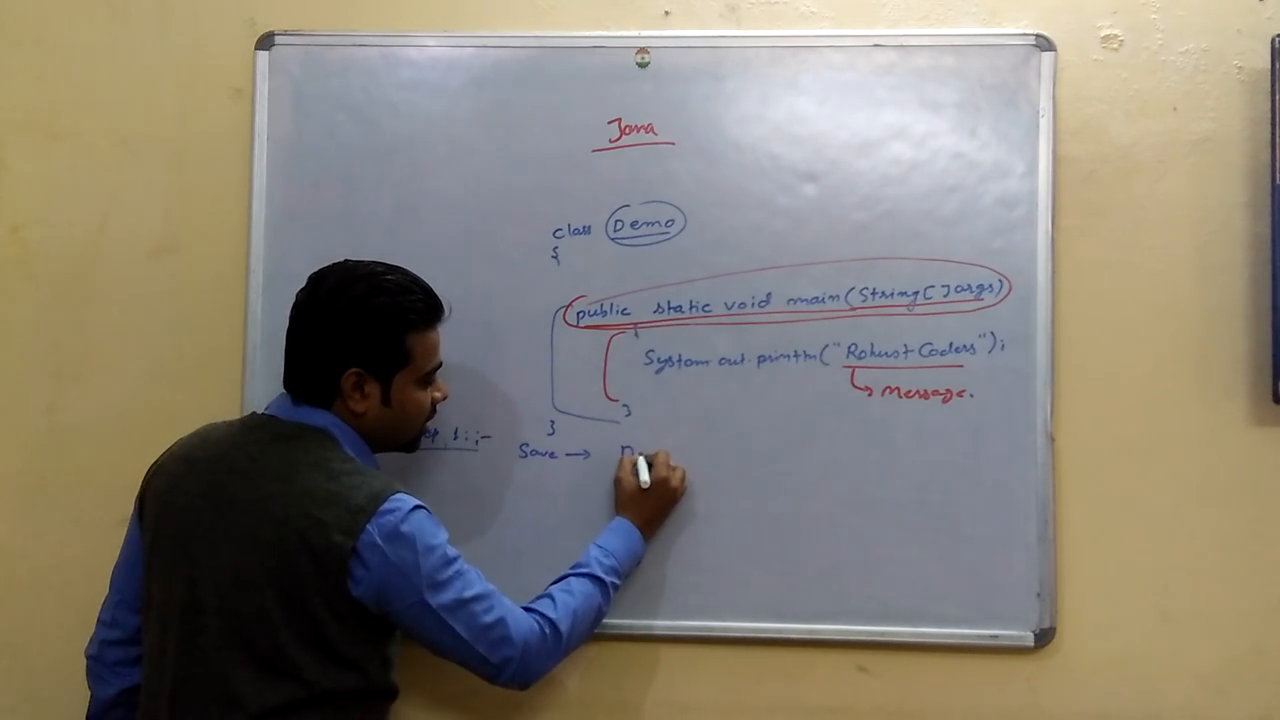 Java
class Demo
{
public static void main(String[]args)
{
System.out.println("Robust Coders");
→ Message.
}
}
1:-
Save →